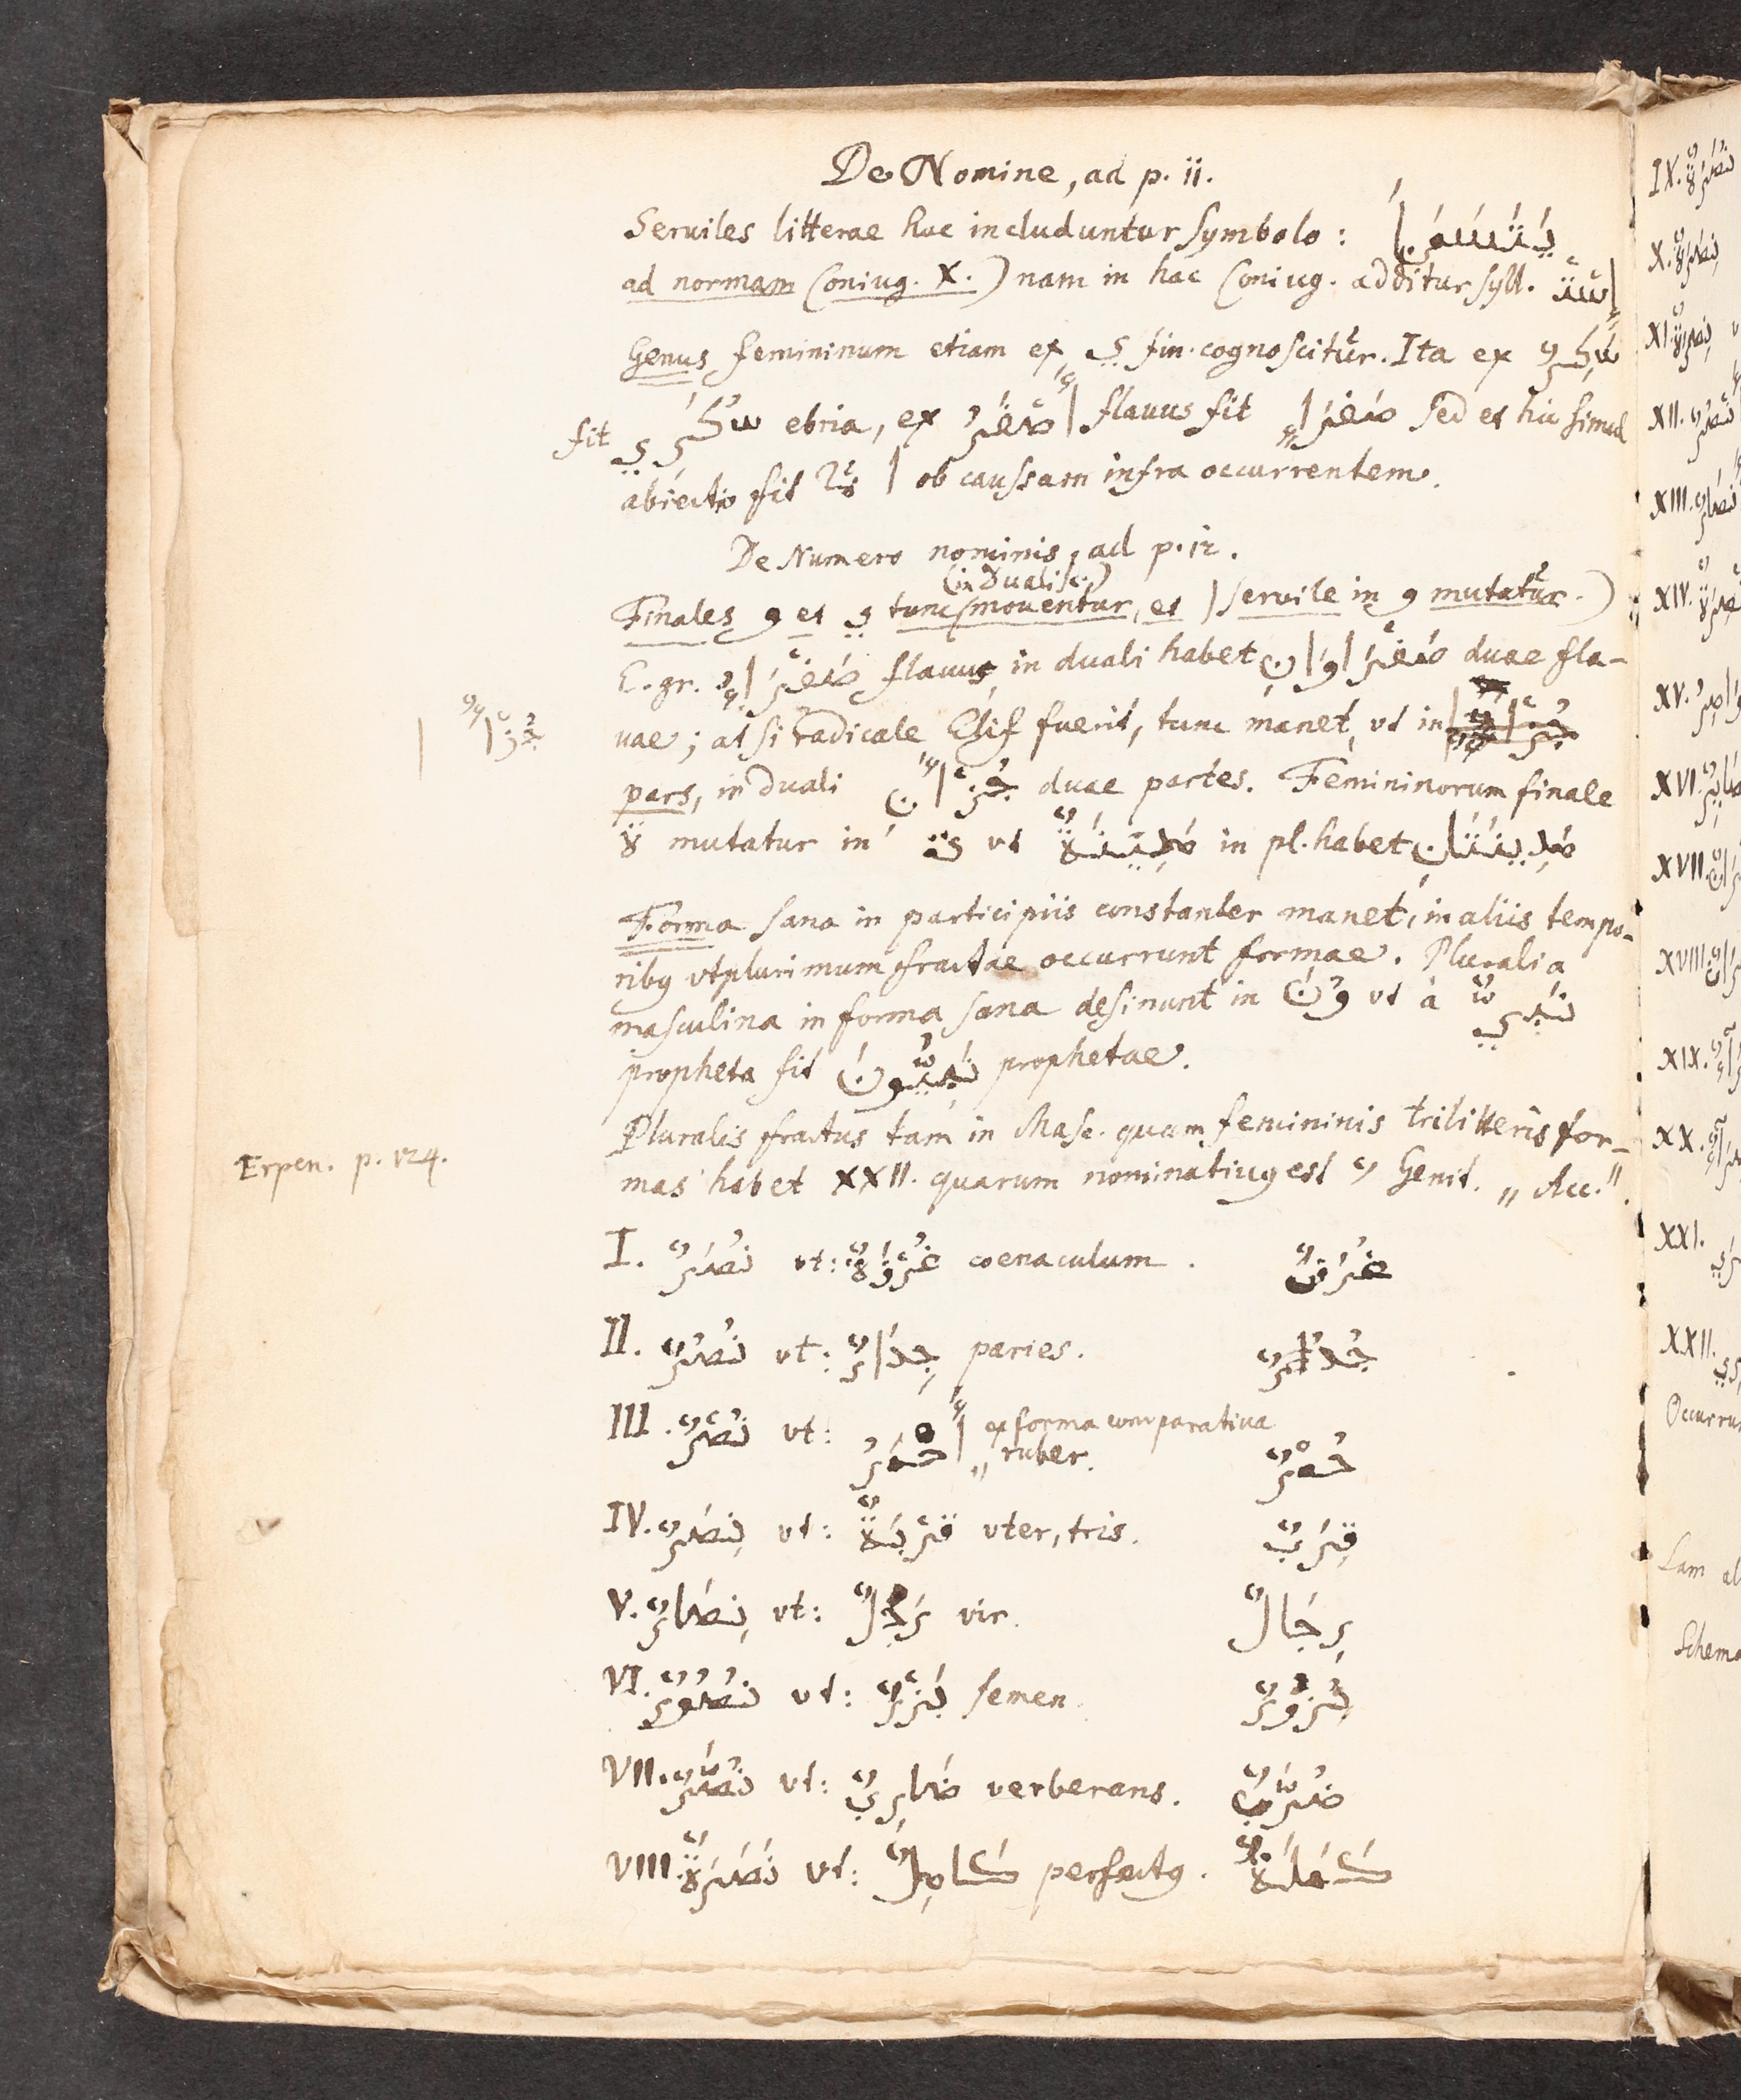 De Nomine, ad p. 11.
Seruiles litterae hac includuntur symbolo : يَتَسَمَّنُوا
ad normam Coniug. X.) nam in hac Coniug. additur syll. إِسْتَ
Genus femininum etiam ex ي fin. cognoscitur. Ita ex
fit سَكْرَي ebria, ex أَصْفَرُ flauus fit صَفْرَاءُ sed et hic simul
abiectio fit ا ob caussam infra occurrentem.
De Numero nominis, ad p. 12.
(in duali sc.)
Finales و et ي tunc mouentur, et ا seruile in و mutatur.)
E. gr. صَفْرَاءُ flauus in duali habet صَفْرَاوَانِ duae fla-
uae; at si radicale Elif fuerit, tunc manet, vt in
جُزْاءٌ
pars, in duali جُزْاءَانِ duae partes. Femininorum finale
ة mutatur in ت vt مَدِينَةٌ in pl. habet مَدِينَتَانِ
Forma sana in participiis constanter manet, in aliis tempo-
ribus vtplurimum fractae occurrunt formae. Pluralia
masculina in forma sana desinunt in ونَ vt a نَبِيٌّ
propheta fit نَبِيُّونَ prophetae.
Pluralis fractus tam in Masc. quam femininis triliteris for-
Erpen. p. 124.
mas habet XXII. quarum nominatiuus est ٌ Genit. ٍ Acc. ً.
I. نُصَرٌ vt: غُرْفَةٌ coenaculum. غُرَفٌ
II. نُصُرٌ vt: جِدَارٌ paries. جُدُرٌ
III. نُصْرٌ vt: أَحْمَرُ ex forma comparatiua
ruber. حُمْرٌ
IV. نِصَرٌ vt: قِرْبَةٌ vter, tris. قِرَبٌ
V. نِصَارٌ vt: رَجُلٌ vir. رِجَالٌ
VI. نُصُورٌ vt: بَزْرٌ semen. بُزُورٌ
VII. نُصَّرٌ vt: ضَارِبٌ verberans. ضُرَّبٌ
VIII. نَصَرَةٌ vt: كَامِلٌ perfectus. كَمَلَةٌ
IX. نُصَرَةٌ
X. نِصَرَةٌ
XI.
XII.
XIII.
XIV.
XV.
XVI.
XVII.
XVIII.
XIX.
XX.
XXI.
XXII.
Occurru
Schema